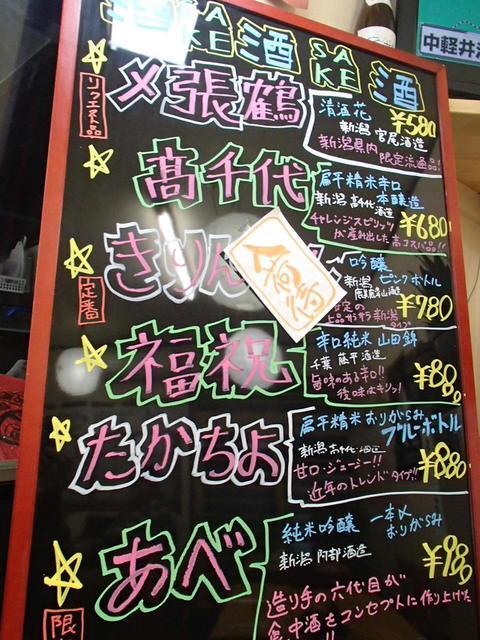 酒 SAKE 酒 SAKE 酒
中軽井
リクエスト品
〆張鶴
清酒 花
新潟 宮尾酒造
¥580
新潟県内 限定流通品!!
髙千代
扁平精米辛口
本醸造
新潟 高千代酒造
¥680
チャレンジスピリッツ
が産み出した高コスパ品!!
定番
きりん
吟醸
ピンクボトル
新潟
¥780
タイプ
福祝
辛口純米 山田錦
千葉 藤平酒造
旨味のある辛口!!
後味はキリッ!
¥880
たかちよ
扁平精米 おりがらみ
ブルーボトル
新潟 高千代酒造
甘口・ジューシー!!
¥880
近年のトレンドタイプ!!
限
あべ
純米吟醸 一本〆
おりがらみ
新潟 阿部酒造
¥980
造り手の六代目が
食中酒をコンセプトに作り上げた
!!